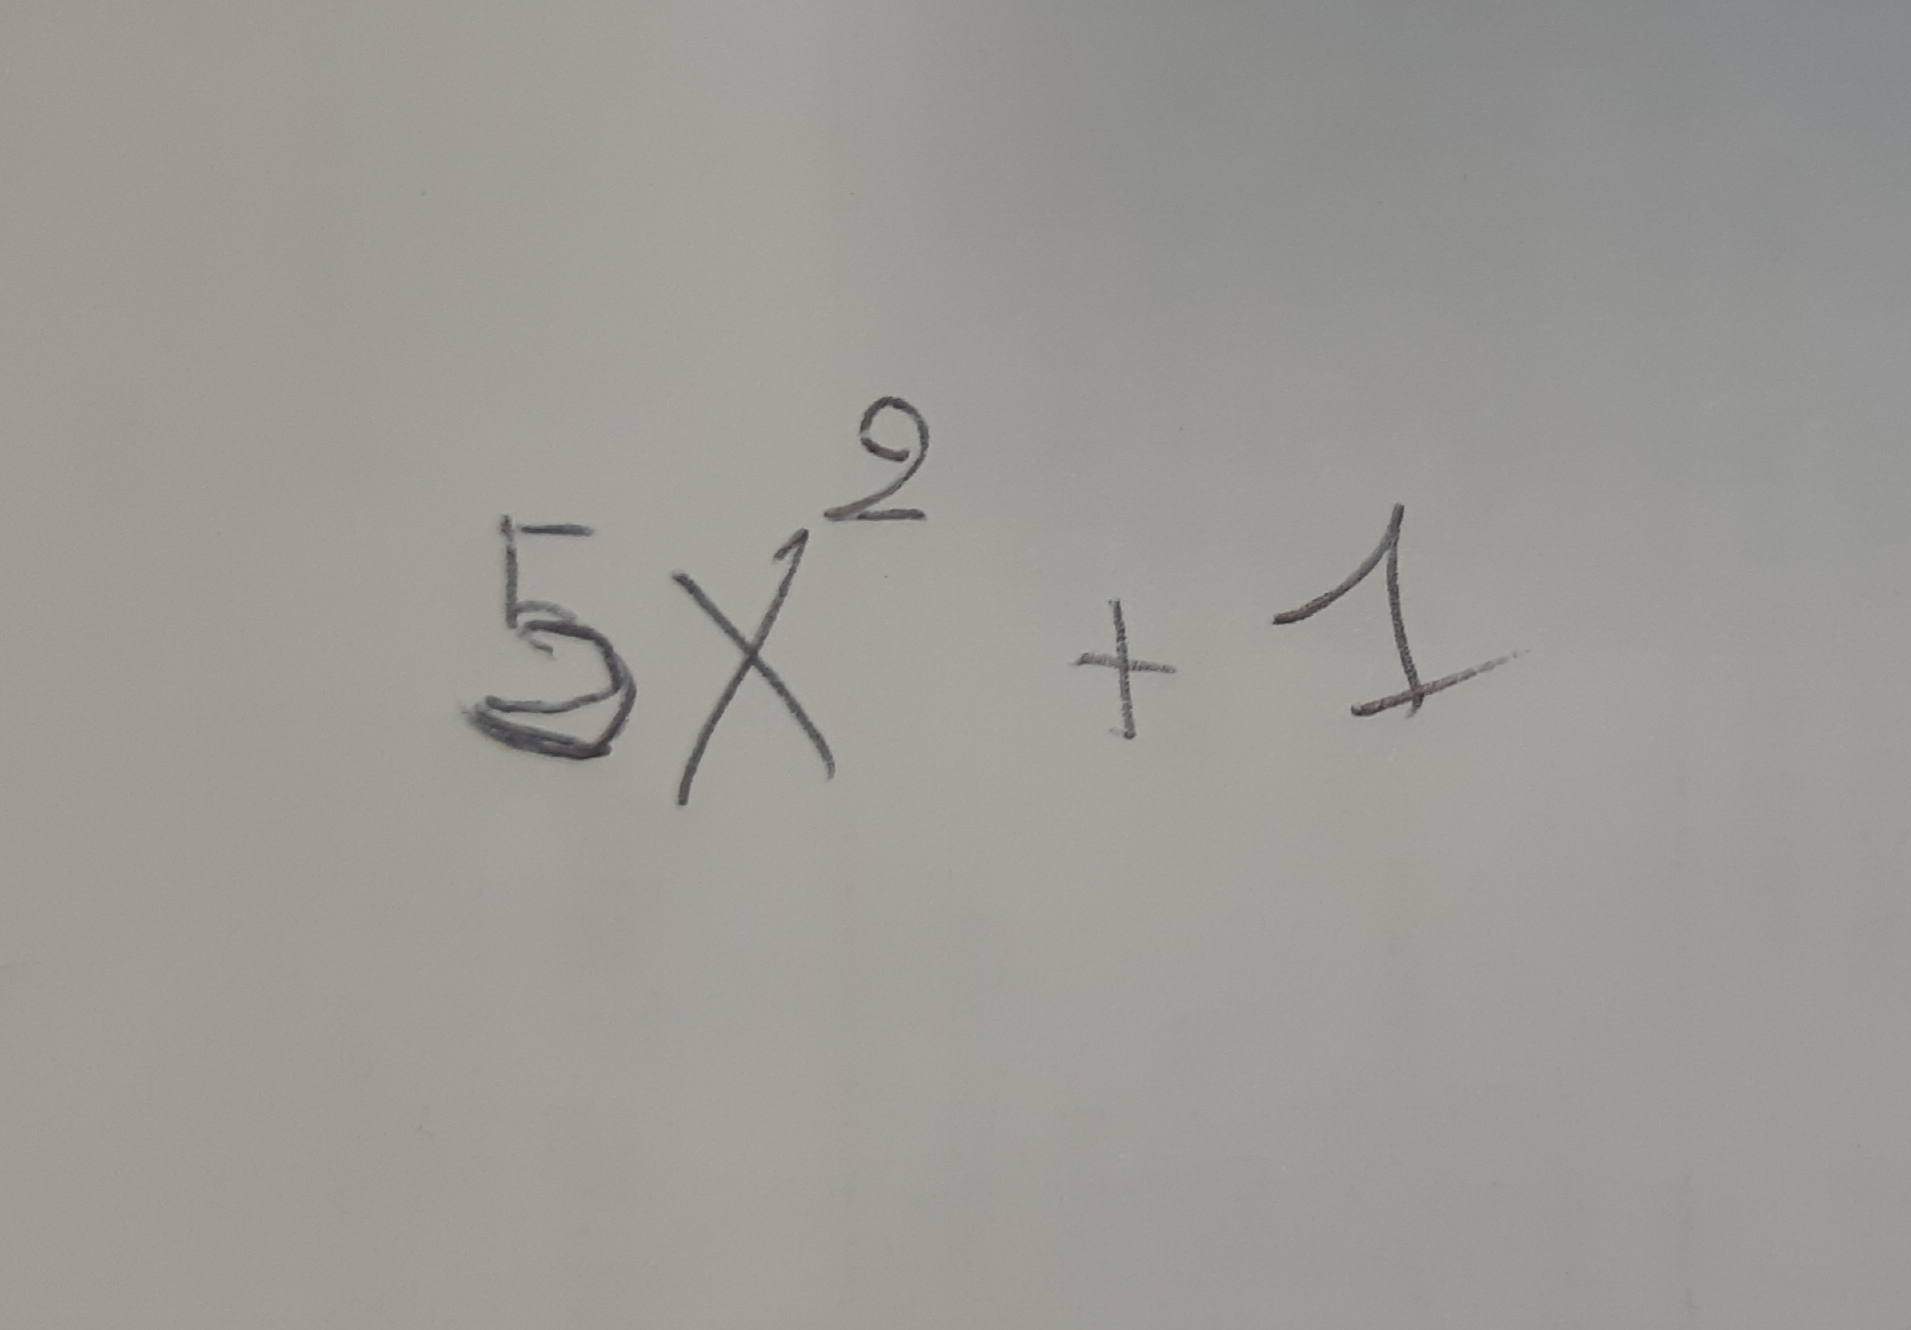 5x² + 1